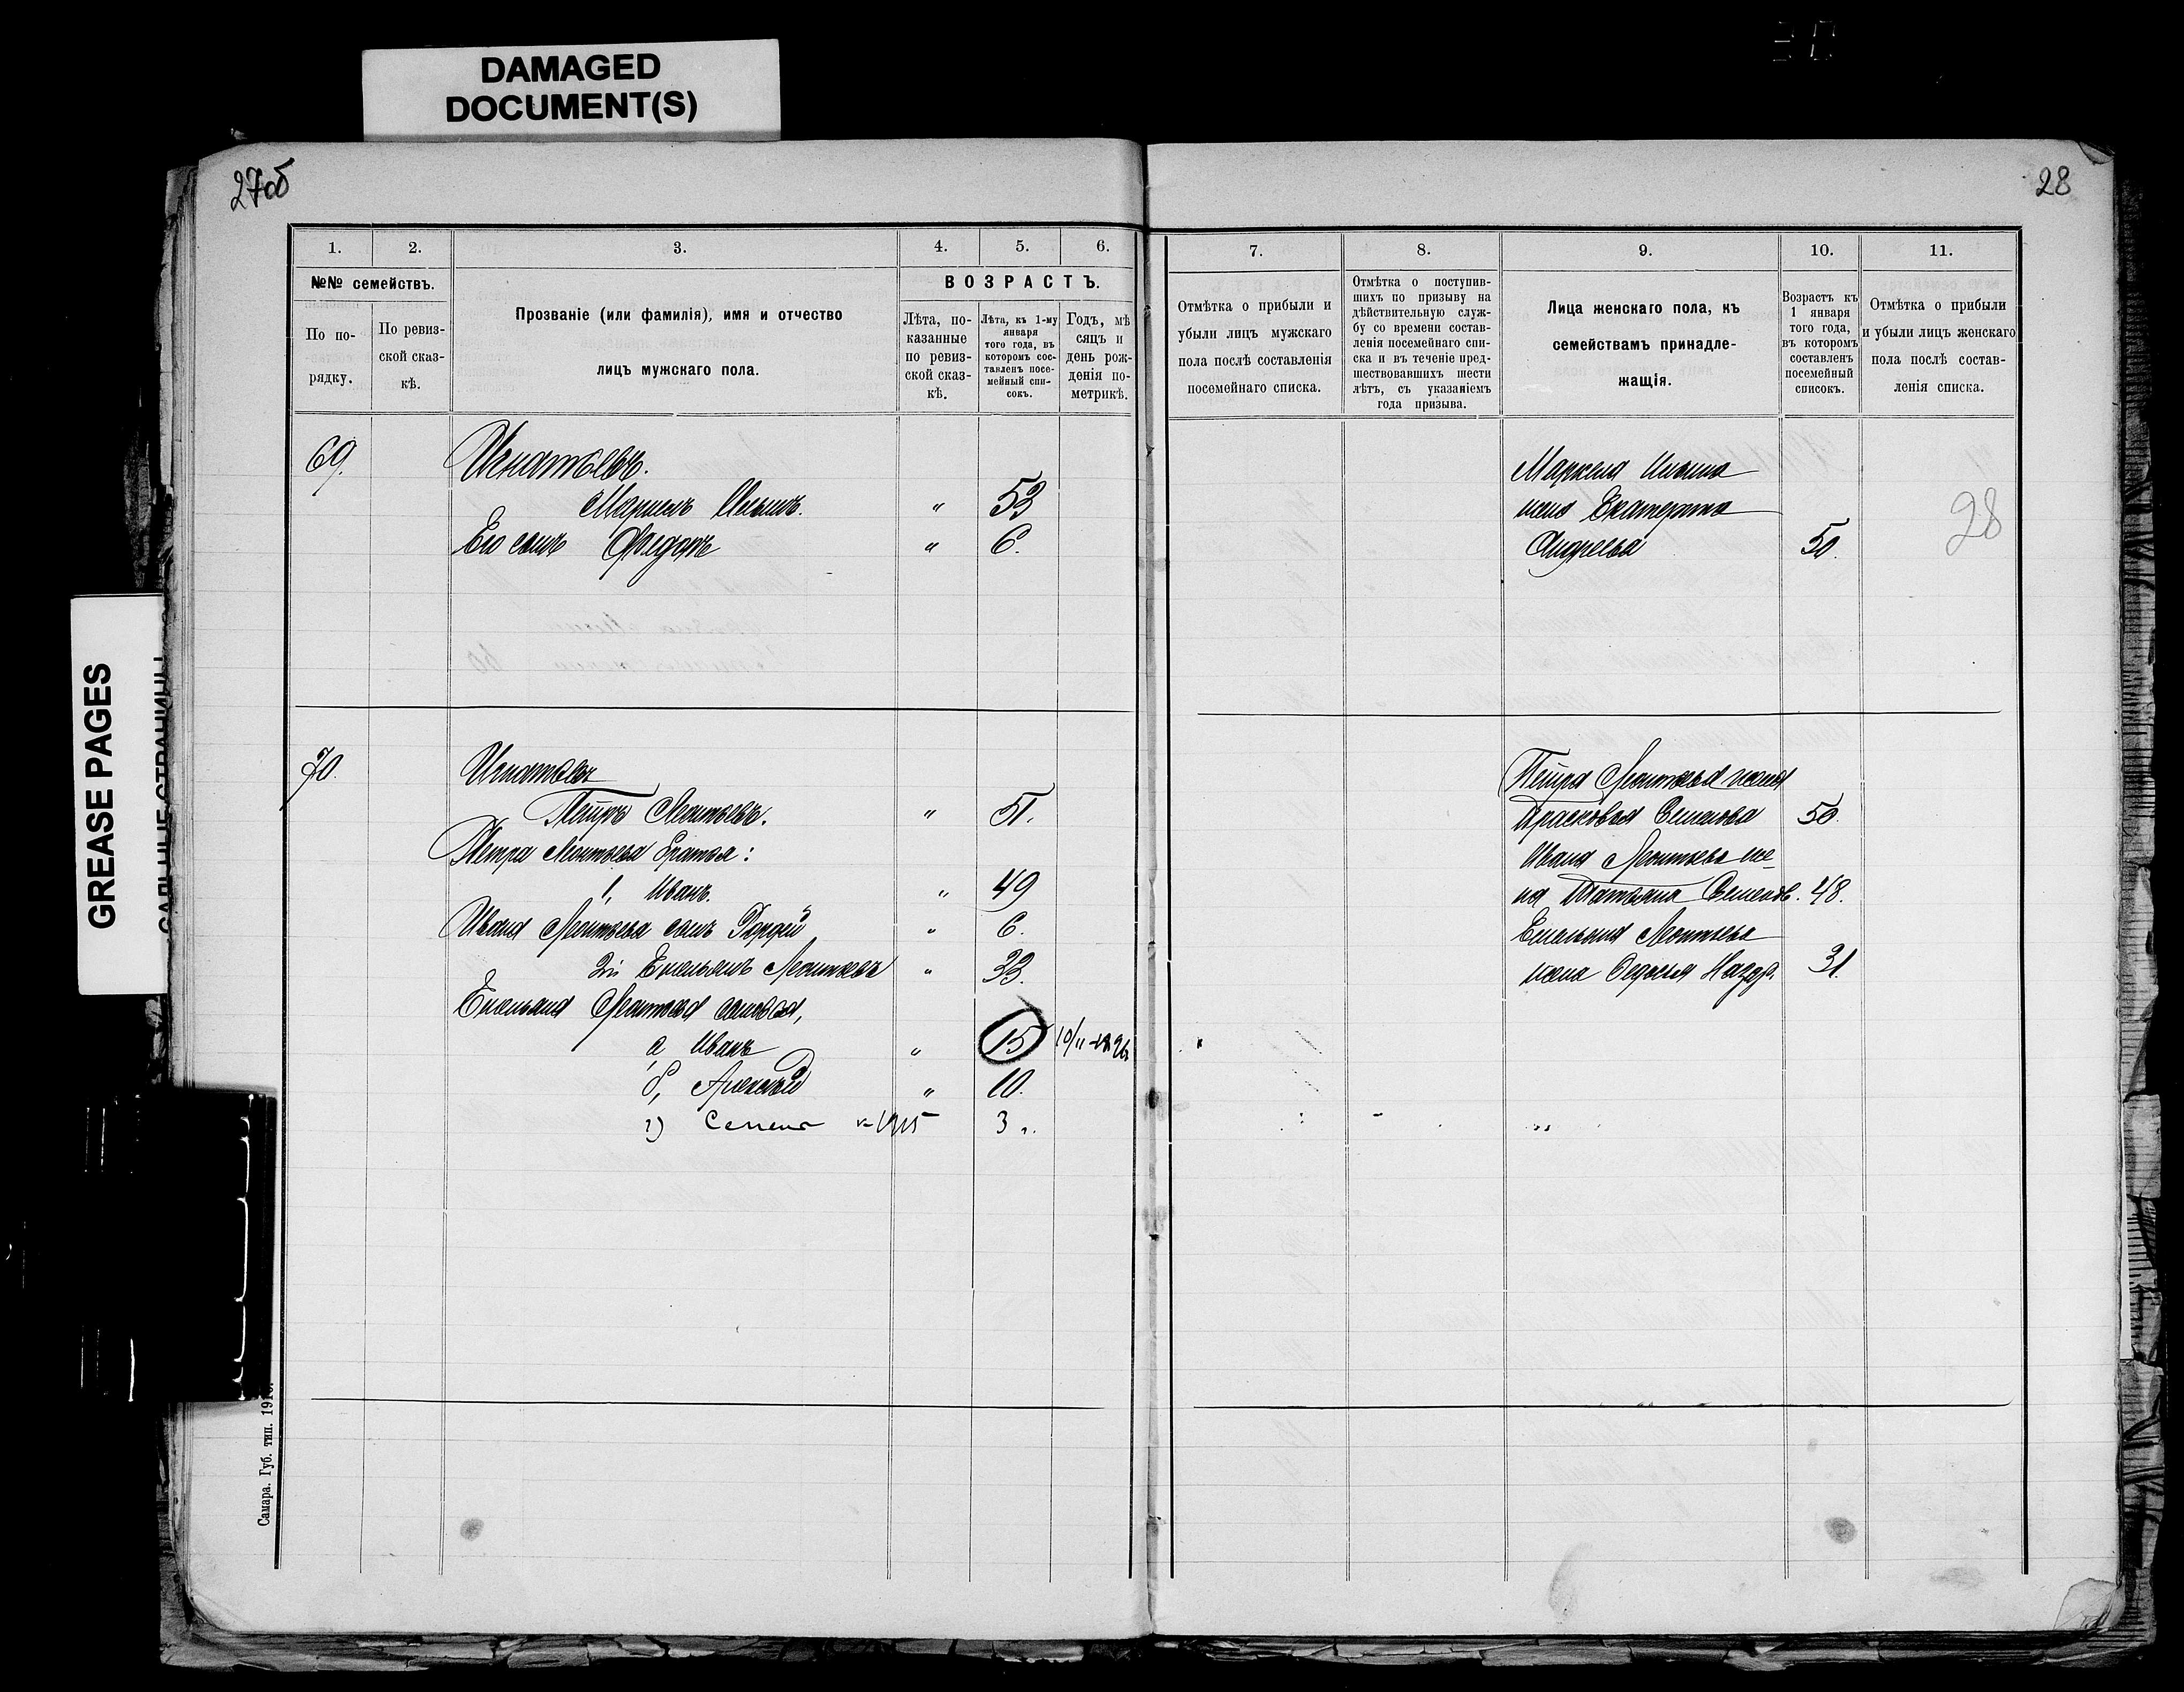 DAMAGED
DOCUMENT(S)
GREASE PAGES
27об
28
1.
2.
3.
4.
5.
6.
№№ семействъ.
По по-
рядку.
По ревиз-
ской сказ-
кѣ.
Прозваніе (или фамилія), имя и отчество
лицъ мужскаго пола.
ВОЗРАСТЪ.
Лѣта, по-
казанные
по ревиз-
ской сказ-
кѣ.
Лѣта, къ 1-му
января
того года, въ
которомъ сос-
тавленъ посе-
мейный спи-
сокъ.
Годъ, мѣ
сяцъ и
день рож-
денія по-
метрикѣ.
7.
8.
9.
10.
11.
Отмѣтка о прибыли и
убыли лицъ мужскаго
пола послѣ составленія
посемейнаго списка.
Отмѣтка о поступив-
шихъ по призыву на
дѣйствительную служ-
бу со времени состав-
ленія посемейнаго спи-
ска и въ теченіе пред-
шествовавшихъ шести
лѣтъ, съ указаніемъ
года призыва.
Лица женскаго пола, къ
семействамъ принадле-
жащія.
Возрастъ къ
1 января
того года,
въ которомъ
составленъ
посемейный
списокъ.
Отмѣтка о прибыли
и убыли лицъ женскаго
пола послѣ состав-
ленія списка.
69. Игнатьевъ.
Маркелъ Ильинъ. " 53
Его сынъ Федоръ " 6.
Маркела Ильина
жена Екатерина
Андреева 50.
28
70. Игнатьевъ
Петръ Леонтьевъ. " 51.
Петра Леонтьева братья:
1, Иванъ. " 49
Ивана Леонтьева сынъ Гордѣй " 6.
2й Емельянъ Леонтьевъ " 33.
Емельяна Леонтьева сыновья,
а, Иванъ " 15
б, Алексѣй " 10.
Семенъ 3
Петра Леонтьева жена
Прасковья Семенова 50.
Ивана Леонтьева же-
на Татьяна Семенов. 48.
Емельяна Леонтьева
жена Федосья 31.
Самара. Губ. тип.